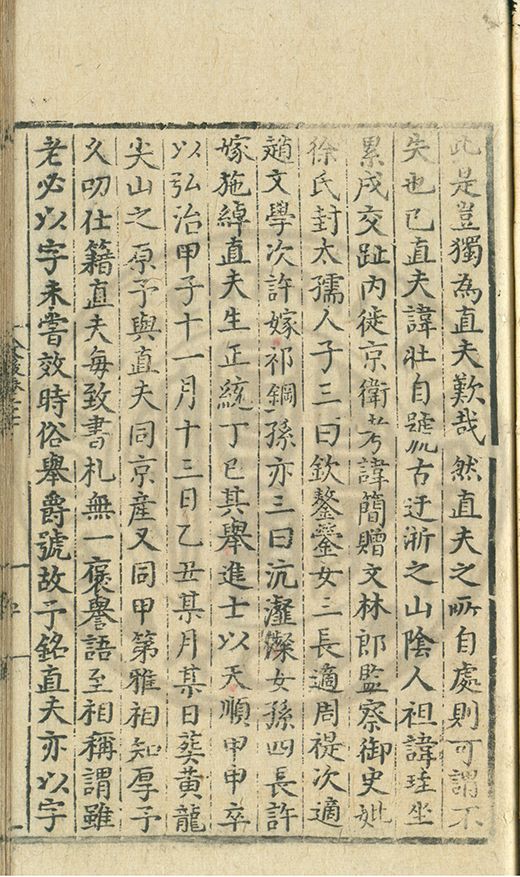 此是豈獨為直夫歎哉然直夫之所自處則可謂不
失也已直夫諱壯自號古迂浙之山陰人祖諱珪坐
累戍交趾内徙京衛考諱簡贈文林郎監察御史妣
徐氏封太孺人子三曰欽鏊鑾女三長適周禔次適
趙文學次許嫁祁鋼孫亦三曰沆瀣㵽女孫四長許
嫁施綽直夫生正統丁巳其舉進士以天順甲申卒
以弘治甲子十一月十三日乙丑某月某日葬黃龍
尖山之原予與直夫同京産又同甲第雅相知厚予
久叨仕籍直夫每致書札無一褒譽語至相稱謂雖
老必以字未嘗效時俗舉爵號故予銘直夫亦以字